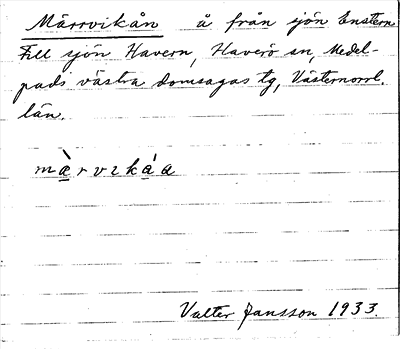 Märrvikån å från sjön Enstern
till sjön Havern, Haverö sn, Medel-
pads västra domsagas tg, Västernorrl.
län.
màrvikáa
Valter Jansson 1933